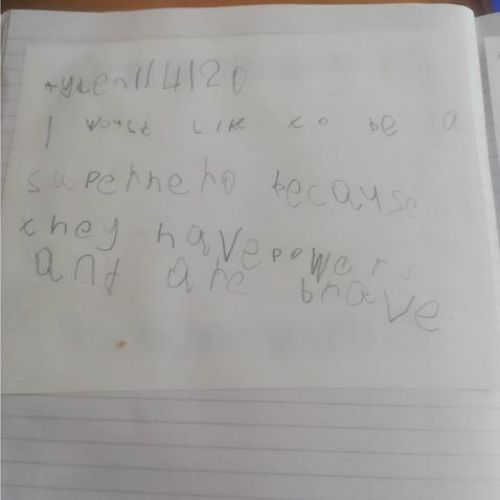 11/4/20
I would like to be a
superhero because
they have powers
and are brave.